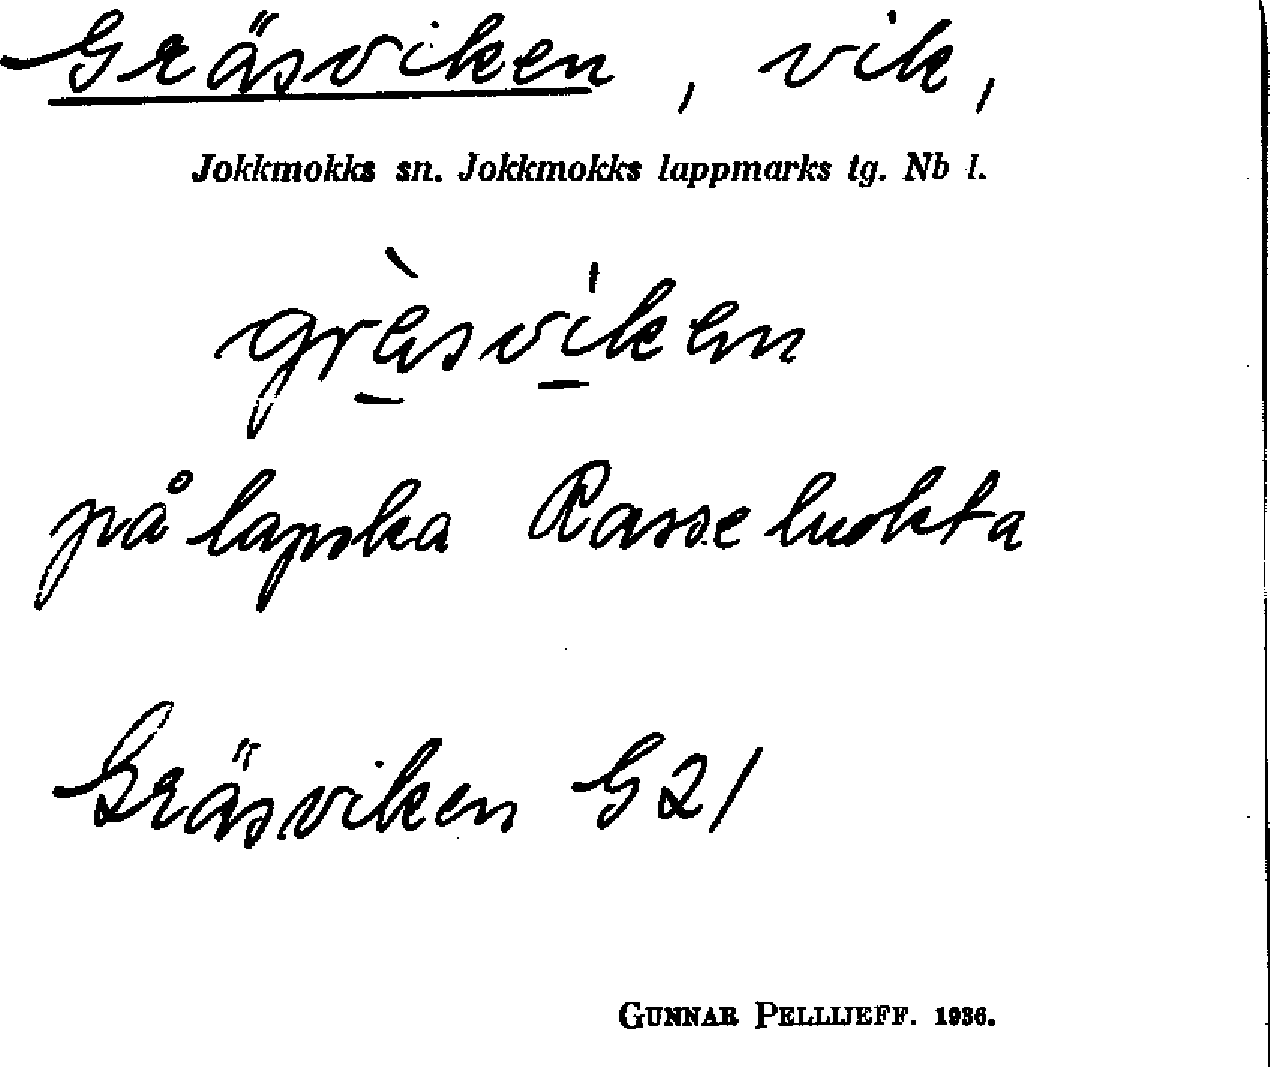 Gräsviken, vik,
Jokkmokks sn. Jokkmokks lappmarks tg. Nb l.
grèsvikən
på lapska Rasseluokta
Gräsviken G21
GUNNAR PELLIJEFF. 1936.